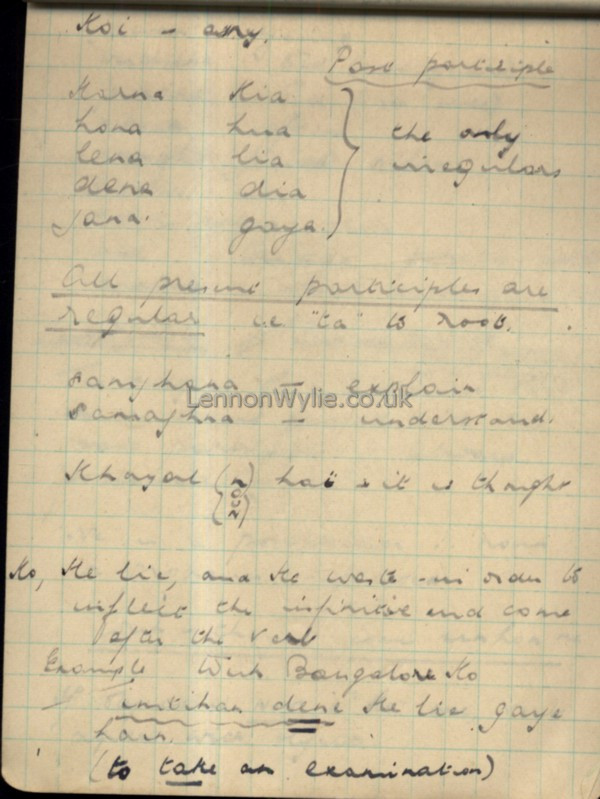 Koi - any.
Past participle
Karna Kia
hona hua
lena lia
dena dia
jana gaya.
the only
irregulars
All present participles are
regular i.e "ta" to root.
samjhana - explain
LennonWylie.co.uk
samajhna - understand.
Khayal (NOUN) hai it is thought
Ko, Ke lie, and Ke waste - in order to
inflect the infinitive and come
after the verb
Example Bangalore Ko
imtihan dene Ke lie gaye
hain.
(to take an examination)